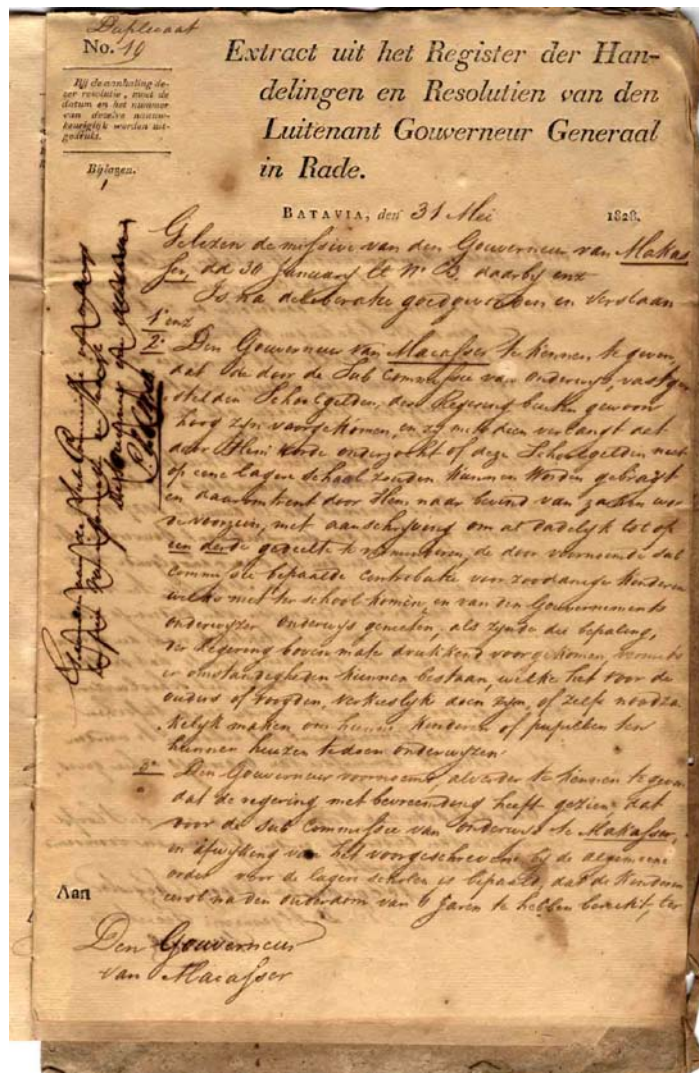 Duplicaat
No. 19
Bij de aanhaling de-
zer resolutie, moet de
datum en het nummer
van dezelve naauw-
keuriglijk worden uit-
gedrukt.
Bijlagen.
1
Extract uit het Register der Han-
delingen en Resolutien van den
Luitenant Gouverneur Generaal
in Rade.
BATAVIA, den 31 Mei 1828.
Gelezen de missive van den Gouverneur van Makas
ser, dd 30 January Lt No B. daarby enz
Is na deliberatie goedgevonden en verstaan
1o enz
2o Den Gouverneur van Macasser te kennen te geven,
dat de door de Sub Commissie van onderwys, vastge
stelden Schoolgelden, der Regering buiten gewoon
hoog zyn voorgekomen, en zy met dien verlangt dat
door Hem worde onderzocht of deze Schoolgelden niet
op eene lagere schaal zouden kunnen worden gebragt
en daaromtrent door Hem naar bevind van zaken wor
de voorzien, met aanschryving om al dadelyk tot op
een derde gedeelte te verminderen, de door voornoemde sub
commissie bepaalde contributie voor zoodanige kinderen
welke niet ter school komen, en van den Gouvernements
onderwyzer onderwys genieten, als zynde die bepaling,
der Regering bovenmate drukkend voorgekomen, vermits
er omstandigheden kunnen bestaan, welke het voor de
ouders of voogden, verkieslyk doen zyn, of zelfs noodza
kelyk maken, om hunne kinderen of pupillen ten
hunnen huizen te doen onderwyzen.
3o Den Gouverneur voornoemd, alverder te kennen te geven
dat de regering met bevreemding heeft gezien dat
door de sub Commissie van onderwys te Makasser,
in afwyking van het voorgeschrevene by de algemeene
order voor de lagere scholen is bepaald, dat de kinderen
eerst na den ouderdom van 6 Jaren te hebben bereikt, ter
Aan
Den Gouverneur
van Macasser